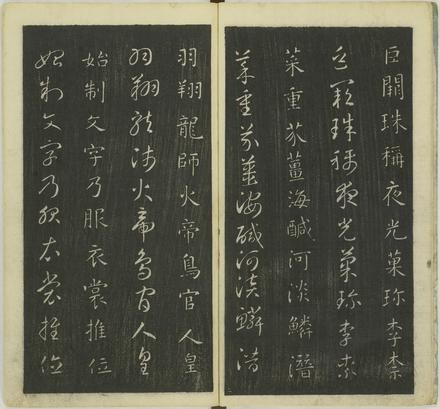 巨闕珠稱夜光菓珎李柰
巨闕珠稱夜光菓珎李柰
菜重芥薑海鹹河淡鱗潛
菜重芥薑海鹹河淡鱗潛
羽翔龍師火帝鳥官人皇
羽翔龍師火帝鳥官人皇
始制文字乃服衣裳推位
始制文字乃服衣裳推位